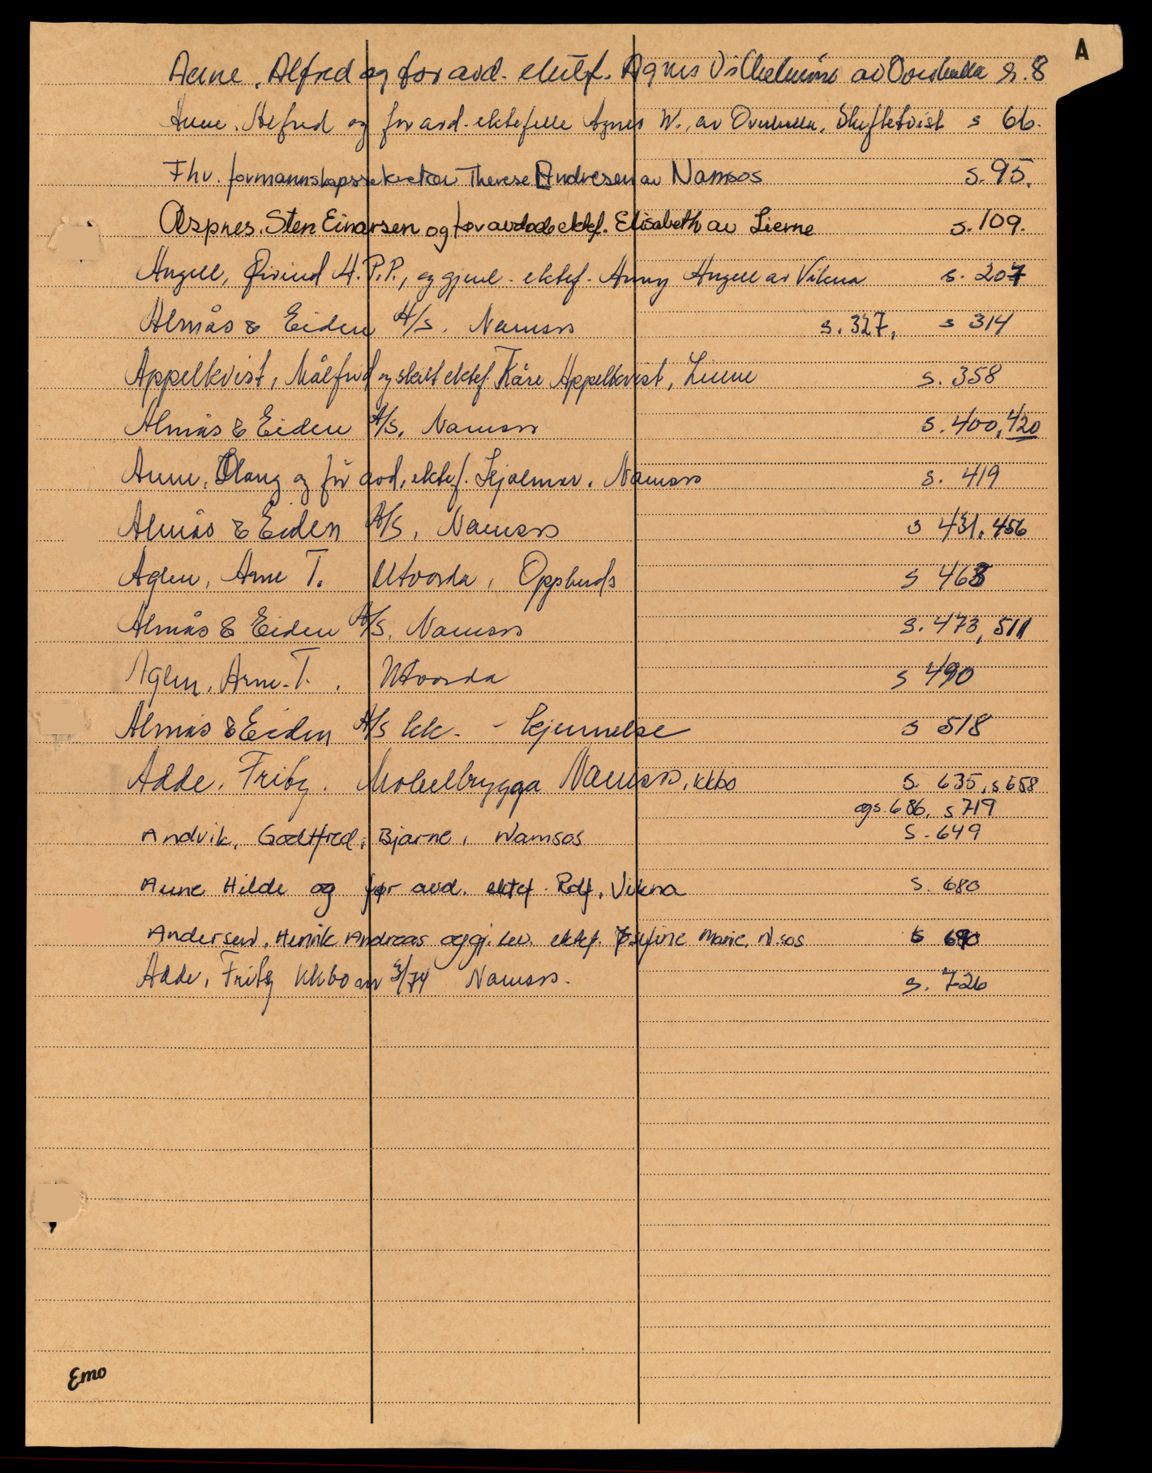 A
Aune, Alfred og for avd. ektef. Agnes Vilhelmine av Overhalla s. 8
Aune, Alfred og for avd. ektefelle Agnes W., av Overhalla, Skiftetvist s 66.
Fhv. formannskapssekretær Therese Andresen av Namsos s. 95.
Aspnes, Sten Einarsen og for avdøde ektef. Elisabeth av Lierne s. 109.
Angell, Øivind H. P.P., og gjenl. ektef. Anny Angell av Vikna s. 207
Almås & Eiden A/S. Namsos s. 327, s 314
Appelkvist, Målfrid og skilt ektef. Kåre Appelkvist, Lierne s. 358
Almås & Eiden A/S, Namsos s. 400, 420
Aune, Olaug og for avd. ektef. Hjalmar, Namsos s. 419
Almås & Eiden A/S, Namsos s 431, 456
Aglen, Arne T. Utvorda, Oppbuds s 468
Almås & Eiden A/S, Namsos s. 473, 511
Aglen, Arne T. Utvorda s 490
Almås & Eiden A/S kk. - kjennelse s 518
Adde, Fritz. Motellbrygga Namsos, kkbo s. 635, s 658
og s. 686, s 719
Andvik, Godtfred, Bjarne, Namsos s. 649
Aune Hilde og for avd. ektef. Rolf, Vikna s. 680
Andersen, Henrik Andreas og gj.lev. ektef. Josefine Marie, N.sos s 690
Adde, Fritz kkbo nr 3/74 Namsos. s. 726
Emo